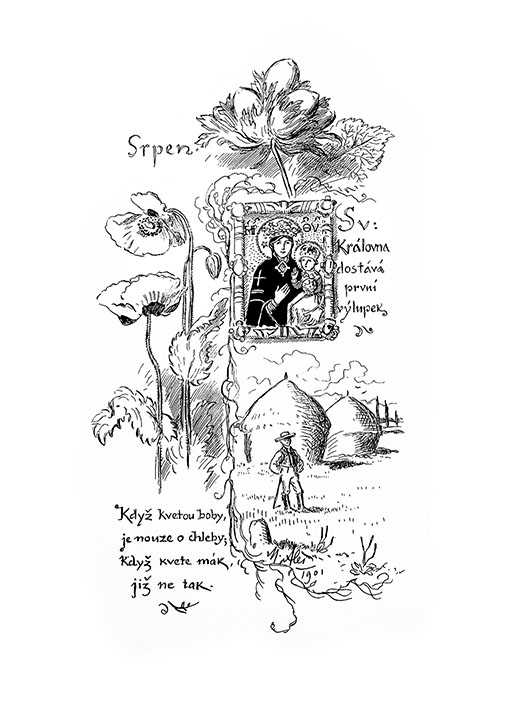 Srpen.
Sv:
Královna
dostává
první
výlupek
Když kvetou boby,
je nouze o chleby;
Když kvete mák,
již ne tak.
M. Aleš
1901